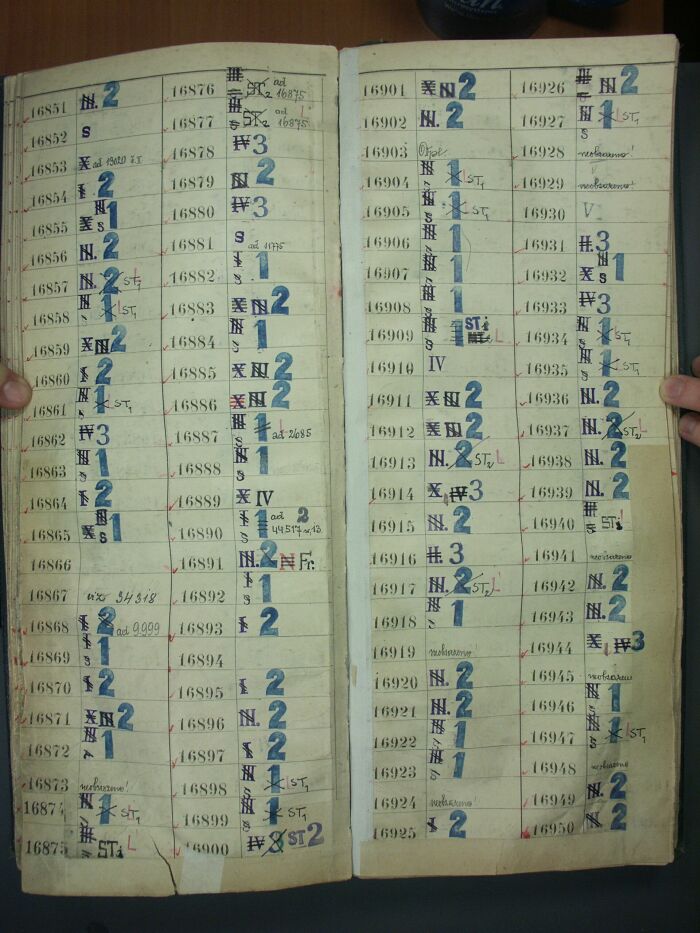 16851 N. 2
16852 S
16853 X ad 13020 z.I
16854 I 2
16855 X N S 1
16856 N. 2
16857 N. 2 ST2 L
16858 N S 1 L ST1
16859 X N 2
16860 I 2
16861 N S 1 L ST1
16862 IV 3
16863 N S 1
16864 I 2
16865 X N S 1
16866
16867 viz 34318
16868 I 2 ad 9.999
16869 I S 1
16870 I 2
16871 X N 2
16872 N 1
16873 neobsazeno!
16874 N S 1 L ST1
16875 ST1 L
16876 ST2 ad 16875
16877 ST2 ad L 16875
16878 IV 3
16879 N 2
16880 IV 3
16881 S ad 11775
16882 I S 1
16883 X N 2
16884 N S 1
16885 X N 2
16886 X N 2
16887 N S 1 ad 2685
16888 N S 1
16889 X IV
16890 I S 1 ad 2
16891 N. 2 N Fr.
16892 I S 1
16893 I 2
16894
16895 I 2
16896 N. 2
16897 I 2
16898 N S 1 L ST1
16899 N S 1 ST1
16900 IV 3 ST 2
16901 X N 2
16902 N. 2
16903
16904 N S 1 L ST1
16905 N S 1 L ST1
16906 N S 1
16907 N S 1
16908 N S 1
16909 N S 1 ST1 L
16910 IV
16911 X N 2
16912 X N 2
16913 N. 2 ST2 L
16914 X IV 3
16915 N. 2
16916 H. 3
16917 N. 2 ST2 L
16918 N S 1
16919 neobsazeno!
16920 N. 2
16921 N. 2
16922 N S 1
16923 N S 1
16924 neobsazeno!
16925 I 2
16926 N 2
16927 N S 1 L ST1
16928 neobsazeno!
16929 neobsazeno!
16930 V
16931 H. 3
16932 X N S 1
16933 IV 3
16934 N S 1 L ST1
16935 N S 1 L ST1
16936 N. 2
16937 N. 2 ST2 L
16938 N. 2
16939 N. 2
16940 ST1
16941 neobsazeno
16942 N. 2
16943 N. 2
16944 X IV 3
16945 neobsazeno
16946 N S 1
16947 N S 1 L ST1
16948 neobsazeno
16949 N. 2
16950 N. 2